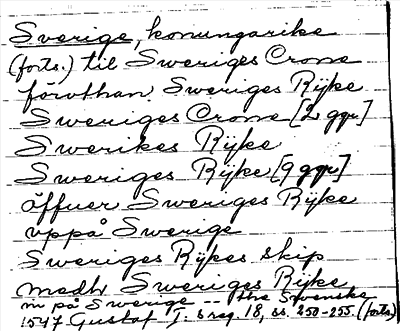 Sverige, konungarike
(forts.) til Sweriges Crone
förvthan Sweriges Rijke
Sweriges Crone [2 ggr]
Swerikes Rijke
Sweriges Rijke [9 ggr]
öffuer Sweriges Rijke
vppå Swerige
Sweriges Rijkes skip
medh Sweriges Rijke
in på Swerige -- the Swenske
1547 Gustaf I: s reg. 18, ss. 250-255. (forts.)